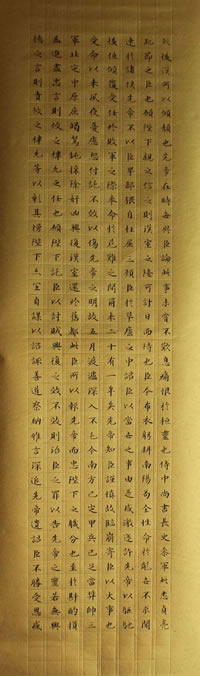 此後漢所以傾頹也先帝在時每與臣論此事未嘗不歎息痛恨於桓靈也侍中尚書長史參軍此悉貞亮
死節之臣也願陛下親之信之則漢室之隆可計日而待也臣本布衣躬耕南陽苟全性命於亂世不求聞
達於諸侯先帝不以臣卑鄙猥自枉屈三顧臣於草廬之中諮臣以當世之事由是感激遂許先帝以驅馳
後值傾覆受任於敗軍之際奉命於危難之間爾來二十有一年矣先帝知臣謹慎故臨崩寄臣以大事也
受命以來夙夜憂慮恐付託不效以傷先帝之明故五月渡瀘深入不毛今南方已定甲兵已足當獎帥三
軍北定中原庶竭駑鈍攘除奸凶興復漢室還於舊都此臣所以報先帝而忠陛下之職分也至於斟酌損
益進盡忠言則攸之禕允之任也願陛下託臣以討賊興復之效不效則治臣之罪以告先帝之靈若無興
德之言則責攸之禕允等以彰其慢陛下亦宜自謀以諮諏善道察納雅言深追先帝遺詔臣不勝受恩感